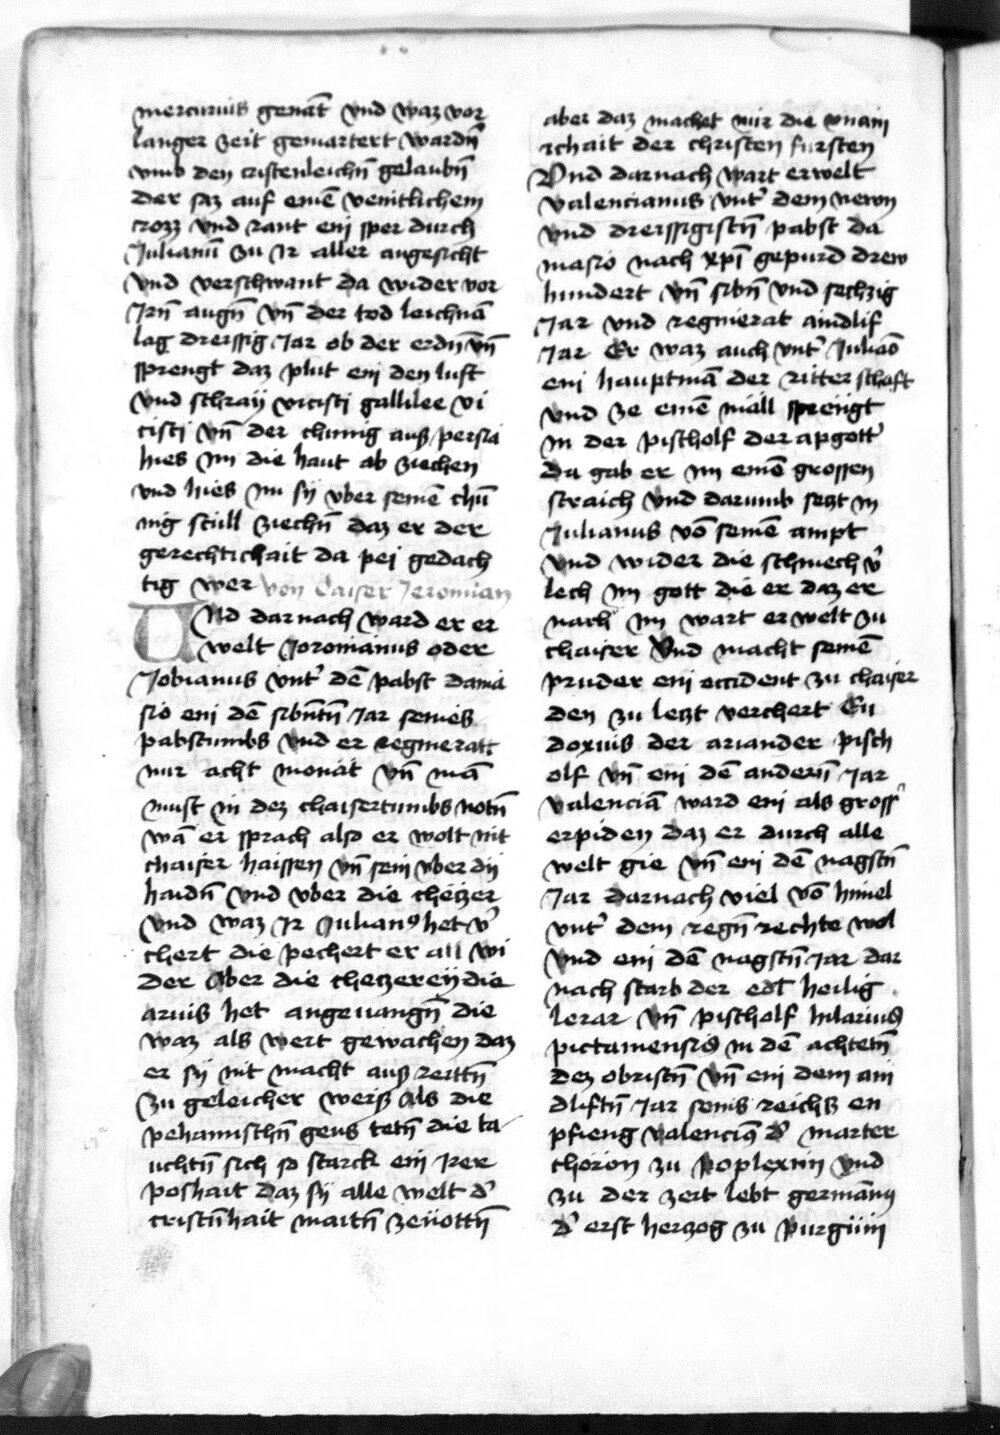 mercurius genāt vnd waz vor
langer zeit gemartert wardn̄
vmb den cristenleichn̄ gelaubn̄
der saz auf einē venitlichem
rozz vnd rant ein sper durch
Julianū zu Ir aller angesicht
vnd verschwant da wider vor
Irn̄ augn̄ vn̄ der tod leichnā
lag dreissig Jar ob der erdn vn̄
sprengt daz plut ein den luft
vnd schraÿ vicisti gallilee vi
cisti vn̄ der chunig auß persia
hies im die haut ab ziechen
vnd hies im sÿ vber seinē chū
nig stull ziechn̄ daz er der
gerechtichait da peÿ gedach
tig wer von Caiser Jeromian
Vnd darnach ward er er
welt Joromianus oder
Jobianus vnt' dē pabst dama
sio ein dē sibn̄tn̄ Jar seines
pabstumbs vnd er regnieratt
nur acht monāt vn̄ mā
must in dez chaisertumbs notn̄
wā er sprach also er wolt nit
chaiser haissen vn̄ sein vber dÿ
haidn̄ vnd vber die chetzer
vnd waz Ir Julian9 het v'
chert die pechert er all wi
der Aber die chetzereÿ die
arius het angeuangn̄ die
waz als wert gewachen daz
er sÿ nit macht auß reittn̄
zu geleicher weiß Als die
pehamischn̄ gens tetn̄ die ta
uchtn̄ sich so starck ein irer
poshait daz sÿ alle welt d'
cristn̄hait maitn̄ zeüottn̄
aber daz machet mir die vnain
ichait der christen fursten
Vnd darnach wart erwelt
valencianus vnt' dem newn
vnd dreissigistn̄ pabst da
masio nach xp̄i gepurd drew
hundert vn̄ sibn̄ vnd sechzig
Jar vnd regnierat aindlif
Jar Er waz auch vnt' Juliāo
ein hauptmā der ritterschaft
vnd ze einē māll sprengt
in der pischolf der apgott'
da gab er im einē grossen
straich vnd darumb setzt in
Julianus vō seinē ampt
vnd wider die schmech v'
lech im gott die er daz er
nach im wart erwelt zu
chaiser Vnd macht seinē
pruder ein occident zu chaiser
den zu letzt verchert Eu
doxius der ariander pisch
olf vn̄ ein dē andern̄ Jar
valenciā ward ein als gross'
erpiden daz er durch alle
welt gie vn̄ ein dē nagstn̄
Jar darnach viel vō himel
vnt' dem regn̄ rechte wol
vnd ein dē nagstn̄ Jar dar
nach starb der edl heilig
lerar vn̄ pischolf hilarius
pictauiensis in dē achtetn̄
dez obristn̄ vn̄ ein dem ain
dliftn̄ Jar seins reichs en
pfieng valenciā d' marter
choron zu poplexiin vnd
zu der zeit lebt germān9
d' erst herzog zu purgüin